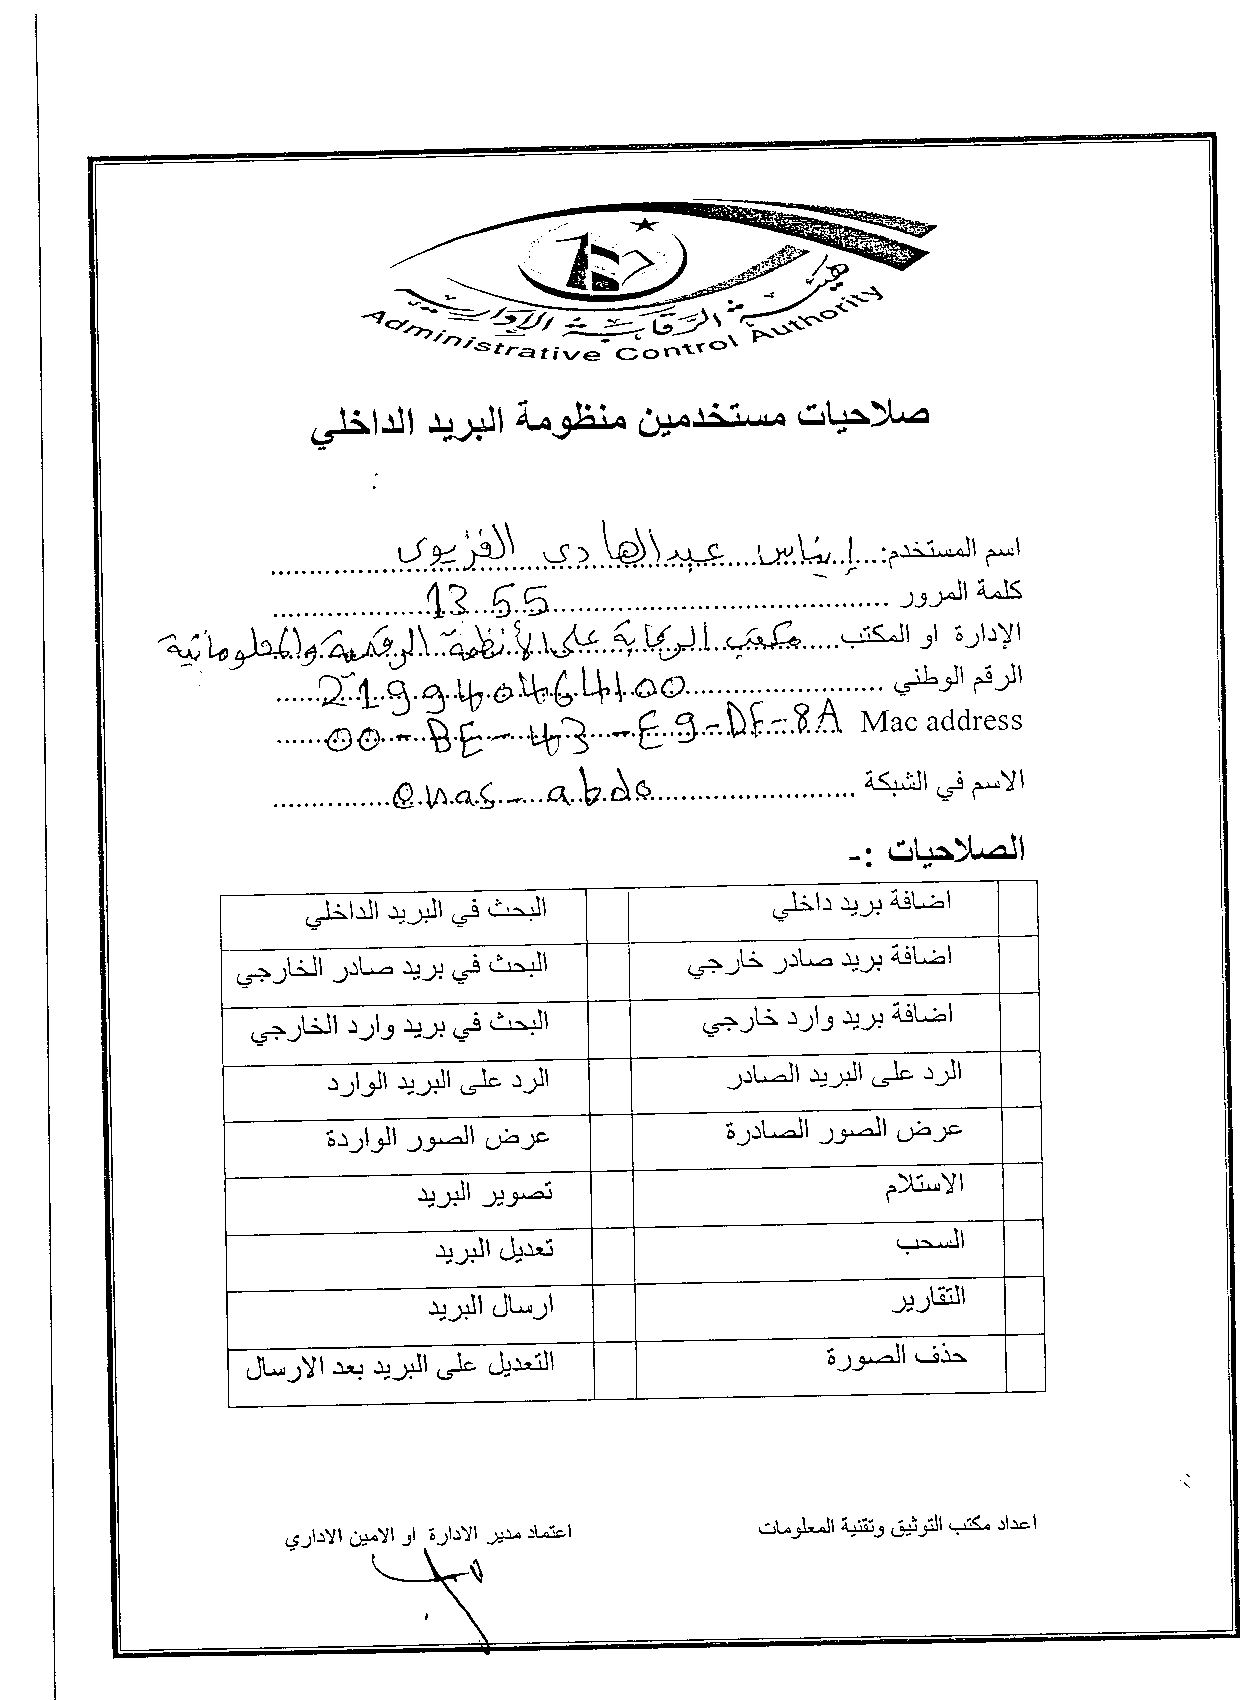 هيئة الرقابة الإدارية
Administrative Control Authority
صلاحيات مستخدمين منظومة البريد الداخلي
اسم المستخدم: إيناس عبد الهادي الفزيوى
كلمة المرور 1355
الإدارة او المكتب مكتب الرقابة على الأنظمة الرقمية والمعلوماتية
الرقم الوطني 219940464100
Mac address 00-BE-43-E9-DF-8A
الاسم في الشبكة enas-abdo
الصلاحيات :-
اضافة بريد داخلي البحث في البريد الداخلي
اضافة بريد صادر خارجي البحث في بريد صادر الخارجي
اضافة بريد وارد خارجي البحث في بريد وارد الخارجي
الرد على البريد الصادر الرد على البريد الوارد
عرض الصور الصادرة عرض الصور الواردة
الاستلام تصوير البريد
السحب تعديل البريد
التقارير ارسال البريد
حذف الصورة التعديل على البريد بعد الارسال
اعداد مكتب التوثيق وتقنية المعلومات اعتماد مدير الادارة او الامين الاداري